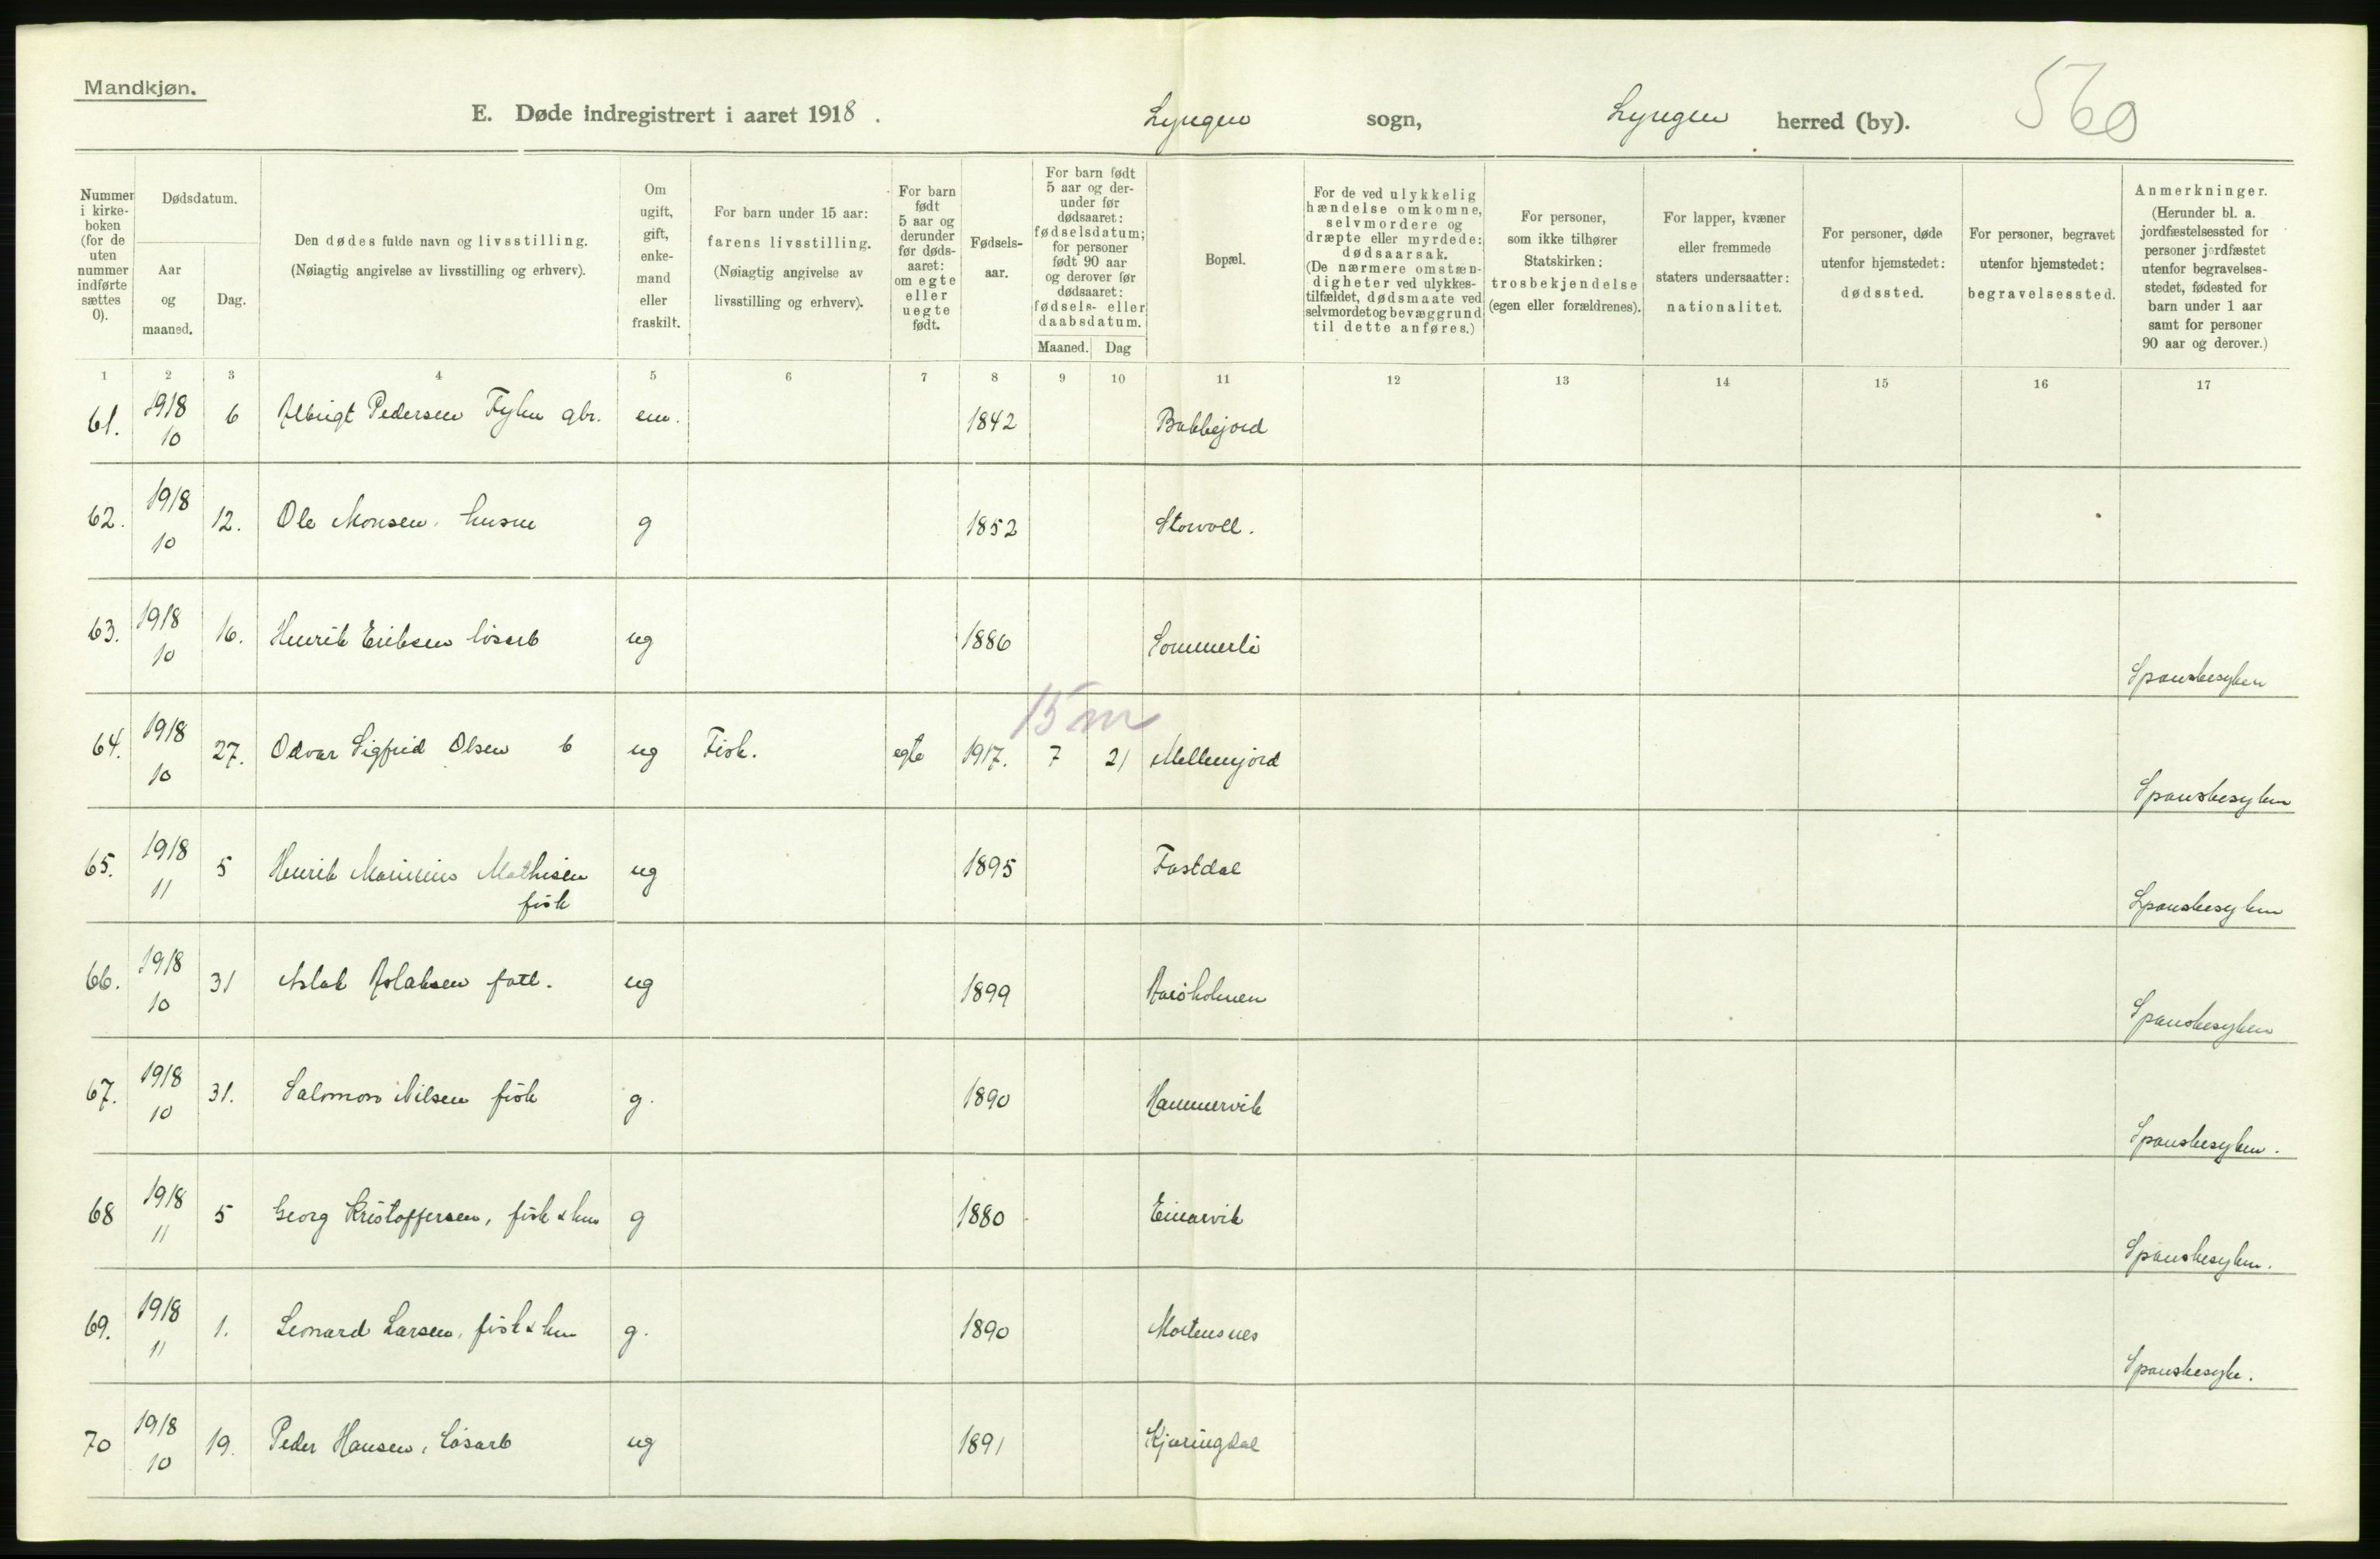 Mandkjøn.
E. Døde indregistrert i aaret 1918. Lyngen sogn, Lyngen herred (by). 560
Nummer i kirke-boken (for de uten nummer indførte sættes 0).
Dødsdatum.
Aar og maaned.
Dag.
Den dødes fulde navn og livsstilling. (Nøiagtig angivelse av livsstilling og erhverv).
Om ugift, gift, enke-mand eller fraskilt.
For barn under 15 aar: farens livsstilling. (Nøiagtig angivelse av livsstilling og erhverv).
For barn født 5 aar og derunder før døds-aaret: om egte eller uegte født.
Fødsels-aar.
For barn født 5 aar og der-under før dødsaaret: fødselsdatum; for personer født 90 aar og derover før dødsaaret: fødsels- eller daabsdatum.
Maaned. Dag
Bopæl.
For de ved ulykkelig hændelse omkomne, selvmordere og dræpte eller myrdede: dødsaarsak. (De nærmere omstæn-digheter ved ulykkes-tilfældet, dødsmaate ved selvmordet og bevæggrund til dette anføres.)
For personer, som ikke tilhører Statskirken: trosbekjendelse (egen eller forældrenes).
For lapper, kvæner eller fremmede staters undersaatter: nationalitet.
For personer, døde utenfor hjemstedet: dødssted.
For personer, begravet utenfor hjemstedet: begravelsessted.
Anmerkninger. (Herunder bl. a. jordfæstelsessted for personer jordfæstet utenfor begravelses-stedet, fødested for barn under 1 aar samt for personer 90 aar og derover.)
1 2 3 4 5 6 7 8 9 10 11 12 13 14 15 16 17
61. 1918 10 6 Albrigt Pedersen Fyhn gbr. em. 1842 Bakkejord
62. 1918 10 12. Ole Monsen, husm g 1852 Storvoll.
63. 1918 10 16. Henrik Eriksen løsarb ug 1886 Sommerli Spanskesyken
15 m
64. 1918 10 27. Odvar Sigfrid Olsen b ug Fisk. egte 1917. 7 21 Mellemjord Spanskesyken
65. 1918 11 5 Henrik Marinius Mathisen fisk ug 1895 Fastdal Spanskesyken
66. 1918 10 31 Aslak Aslaksen fatt. ug 1899 Aarøholmen Spanskesyken
67. 1918 10 31. Salomon Nilsen fisk g. 1890 Hammervik Spanskesyken.
68 1918 11 5 Georg Kristoffersen, fisk & hus g 1880 Einarvik Spanskesyken.
69. 1918 11 1. Leonard Larsen, fisk & hus g. 1890 Mortensnes Spanskesyke.
70 1918 10 19. Peder Hansen, løsarb ug 1891 Kjæringdal